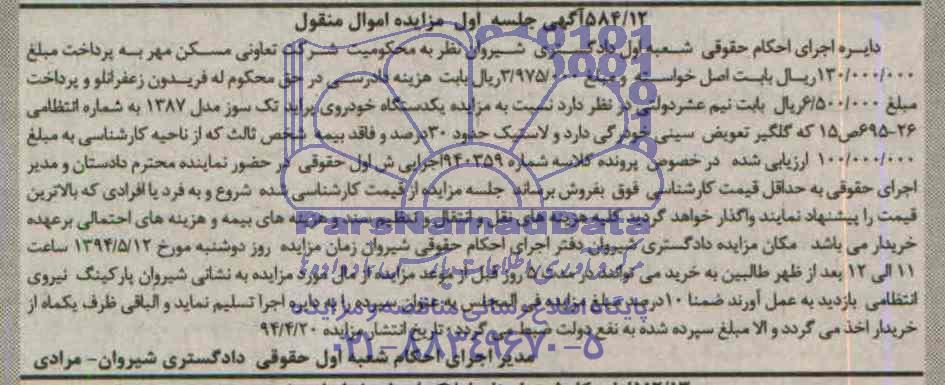 ۵۸۴/۱۲آگهی جلسه اول مزایده اموال منقول
دایره اجرای احکام حقوقی شعبه اول دادگستری شیروان نظر به محکومیت شرکت تعاونی مسکن مهر به پرداخت مبلغ
۱۳۰/۰۰۰/۰۰۰ریال بابت اصل خواسته و مبلغ ۳/۹۷۵/۰۰۰ریال بابت هزینه دادرسی در حق محکوم له فریدون زعفرانلو و پرداخت
مبلغ ۶/۵۰۰/۰۰۰ریال بابت نیم عشردولتی در نظر دارد نسبت به مزایده یکدستگاه خودروی پراید تک سوز مدل ۱۳۸۷ به شماره انتظامی
۲۶-۶۹۵ص۱۵ که گلگیر تعویض سینی خوردگی دارد و لاستیک حدود ۳۰درصد و فاقد بیمه شخص ثالث که از ناحیه کارشناسی به مبلغ
۱۰۰/۰۰۰/۰۰۰ ارزیابی شده در خصوص پرونده کلاسه شماره ۹۴۰۳۵۹اجرایی ش اول حقوقی در حضور نماینده محترم دادستان و مدیر
اجرای حقوقی به حداقل قیمت کارشناسی فوق بفروش برساند جلسه مزایده از قیمت کارشناسی شده شروع و به فرد یا افرادی که بالاترین
قیمت را پیشنهاد نمایند واگذار خواهد گردید کلیه هزینه های نقل و انتقال و تنظیم سند و هزینه های بیمه و هزینه های احتمالی برعهده
خریدار می باشد مکان مزایده دادگستری شیروان دفتر اجرای احکام حقوقی شیروان زمان مزایده روز دوشنبه مورخ ۱۳۹۴/۵/۱۲ ساعت
۱۱ الی ۱۲ بعد از ظهر طالبین به خرید می توانند در مدت ۵ روز قبل از موعد مزایده از مال مورد مزایده به نشانی شیروان پارکینگ نیروی
انتظامی بازدید به عمل آورند ضمنا ۱۰درصد مبلغ مزایده فی المجلس به عنوان سپرده را به دایره اجرا تسلیم نماید و الباقی ظرف یکماه از
خریدار اخذ می گردد و الا مبلغ سپرده شده به نفع دولت ضبط می گردد تاریخ انتشار مزایده ۹۴/۴/۲۰
مدیر اجرای احکام شعبه اول حقوقی دادگستری شیروان- مرادی
ParsNamadData
پایگاه اطلاع رسانی مناقصه و مزایده
۰۲۱-۸۸۳۴۹۶۷۰-۵